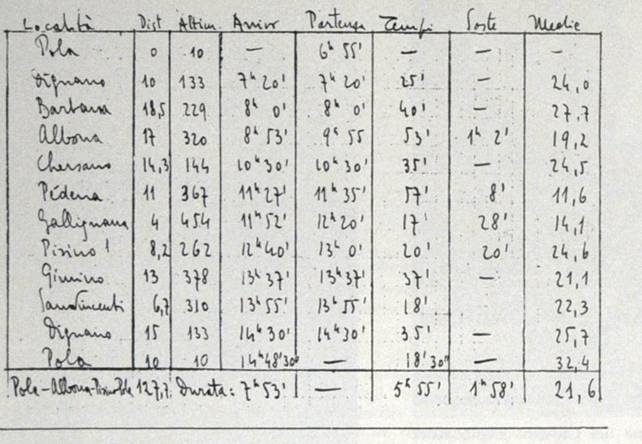 Località Dist Altim. Arrivo Partenza Tempi Soste Medie
Pola 0 10 — 6h 55' — — —
Dignano 10 133 7h 20' 7h 20' 25' — 24,0
Barbana 18,5 229 8h 0' 8h 0' 40' — 27,7
Albona 17 320 8h 53' 9h 55 53' 1h 2' 19,2
Chersano 14,3 144 10h 30' 10h 30' 35' — 24,5
Pedena 11 367 11h 27' 11h 35' 57' 8' 11,6
Gallignana 4 454 11h 52' 12h 20' 17' 28' 14,1
Pisino 8,2 262 12h 40' 13h 0' 20' 20' 24,6
Gimino 13 378 13h 37' 13h 37' 37' — 21,1
Sanvincenti 6,7 310 13h 55' 13h 55' 18' 22,3
Dignano 15 133 14h 30' 14h 30' 35' — 25,7
Pola 10 10 14h 48' 30" — 18' 30" — 32,4
Pola-Albona-Pisino-Pola 127,7 Durata: 7h 53' — 5h 55' 1h 58' 21,6